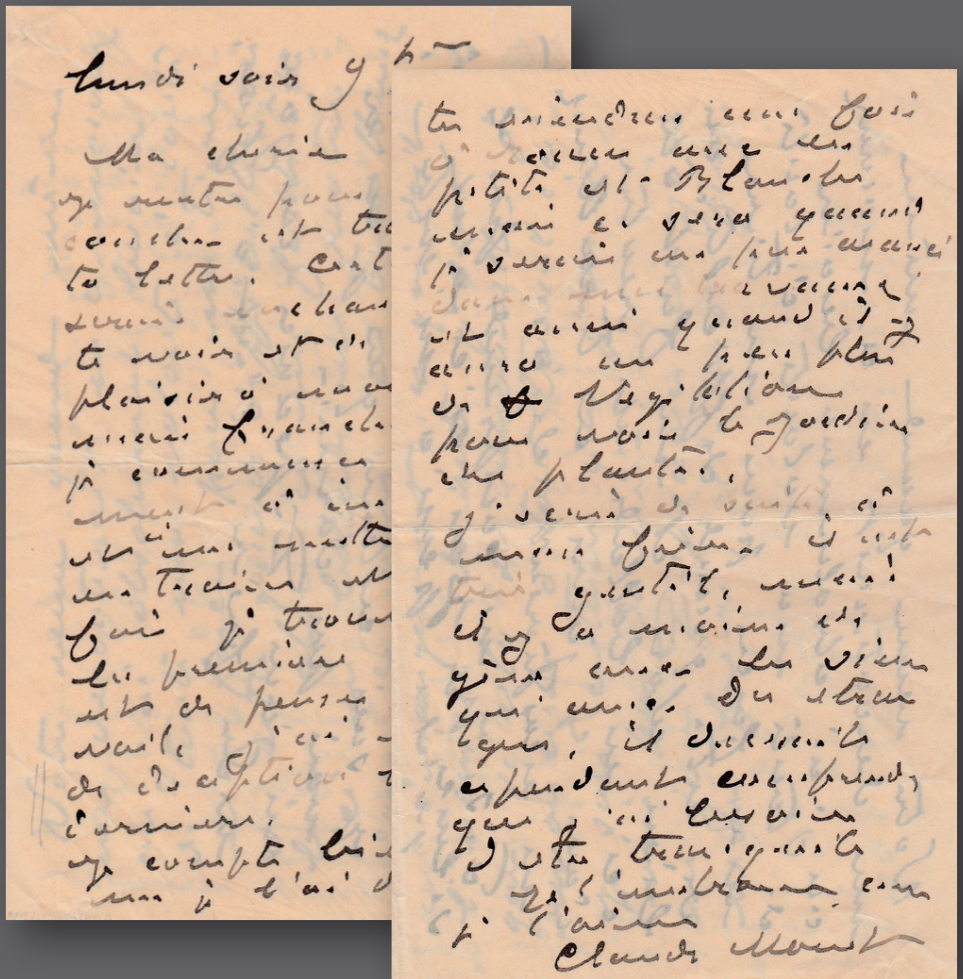 lundi soir 9 h
Ma chérie
je rentre pour
coucher et
ta lettre. Cert
serais enchan
te voir et de
plaisir à
mais franche
je commence
ment à
et
en train et
fois je trouv
les premiers
est de penser
vail, j'ai
de déceptions
dernière.
je compte bie
me je l'ai d
tu viendras une fois
à Rouen avec les
petits et Blanche
mais ce sera quand
je serai un peu avancé
dans mes travaux
et aussi quand il y
aura un peu plus
de Végétation
pour voir le Jardin
des plantes.
je verrai de suite
mon frère. il est
très gentil, mais
il y a moins de
gêne avec les vieux
qu'avec des étran
gers, il devrait
cependant comprendre
que j'ai besoin
d'être tranquille
je t'embrasse comme
je t'aime
Claude Monet